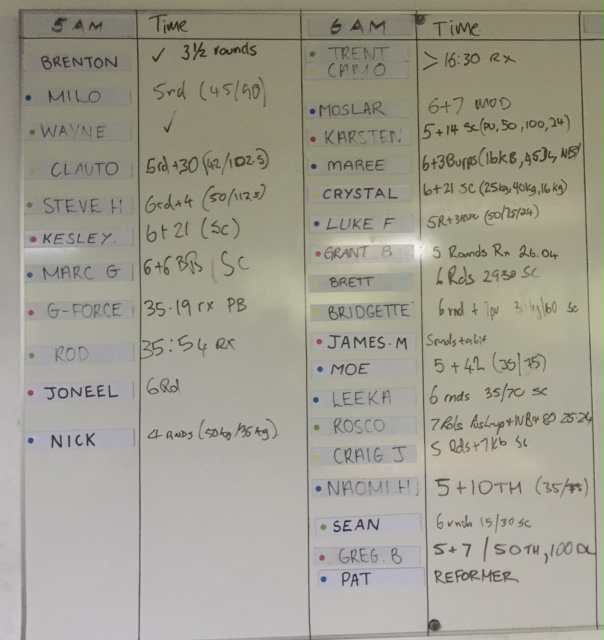 5 AM Time
BRENTON ✓ 3½ rounds
MILO 5rd (45/90)
WAYNE ✓
CLAUTO 5rd+30 (42/102.5)
STEVE H 6rd+4 (50/112.5)
KESLEY. 6+21 (SC)
MARC G 6+6 BB SC
G-FORCE 35.19 rx PB
ROD 35:54 RX
JONEEL 6Rd
NICK 4 RNDS (50kg/35kg)
6 AM Time
TRENT > 16:30 Rx
CAMO
MOSLAR 6+7 MOD
KARSTEN 5+14 SC (PU, 50, 100, 24)
MAREE 6+3Burps (16KB, 45DL,
CRYSTAL 6+21 SC (25kg, 40kg, 16kg)
LUKE F 5R+ (50/75/24)
GRANT B 5 Rounds Rx 26.04
BRETT 6 Rds 2930 SC
BRIDGETTE 6 rnd + SC
JAMES.M 5rnds+abit
MOE 5+42 (35/75)
LEEKA 6 rnds 35/70 SC
ROSCO 7 Rds 80 25.24
CRAIG J 5 Rds+7kb Sc
NAOMI.H 5+10TH (35/75)
SEAN 6 rnds 15/30 SC
GREG.B 5+7 / 50TH, 100DL
PAT REFORMER